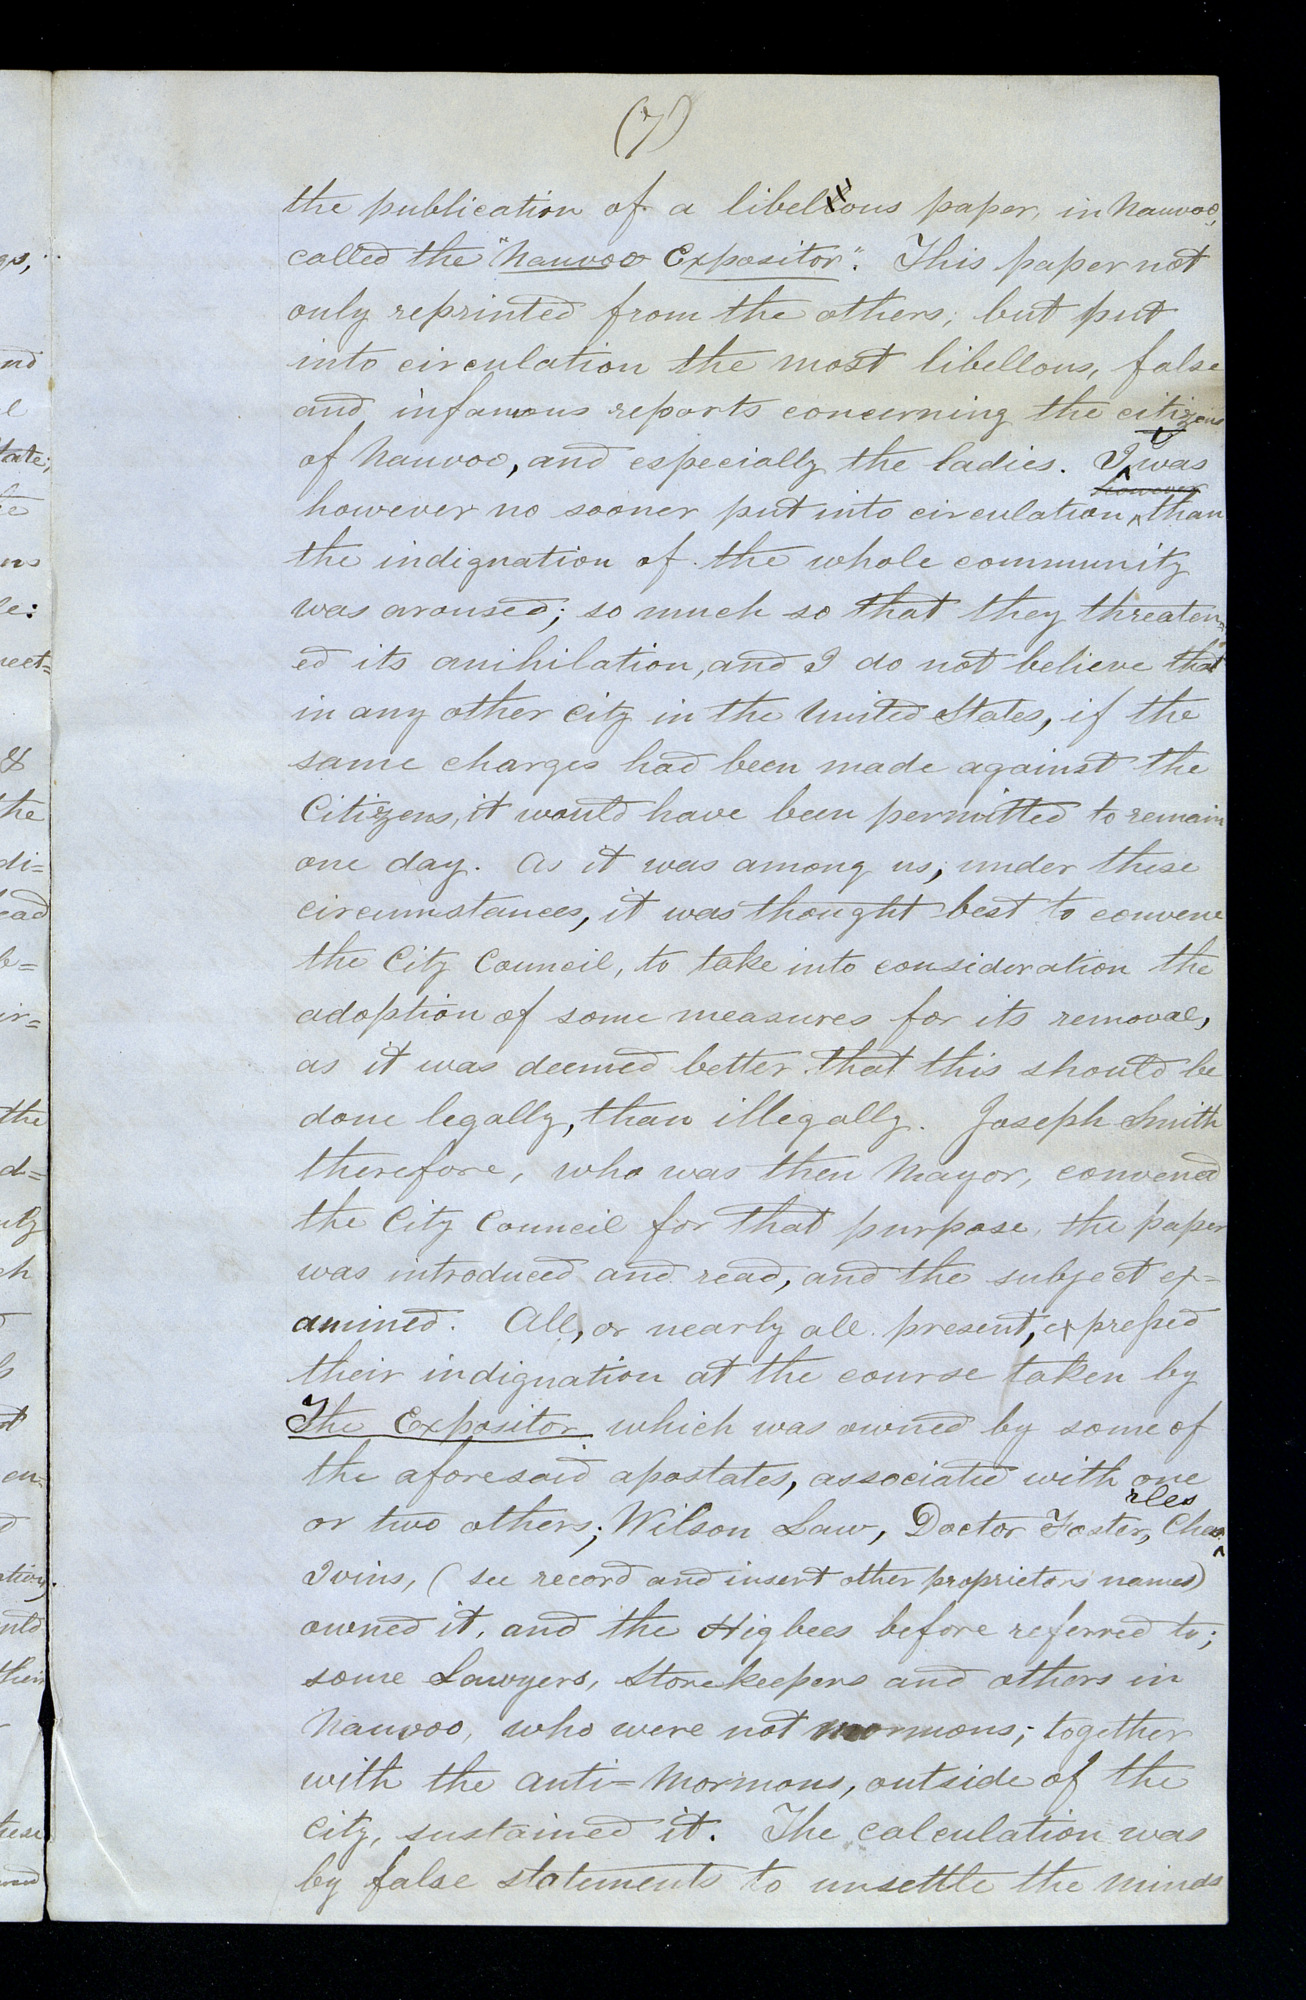 (7)
the publication of a libellous paper, in Nauvoo,
called the "Nauvoo Expositor". This paper not
only reprinted from the others, but put
into circulation the most libellous, false
and infamous reports concerning the citizens
of Nauvoo, and especially the ladies. It was
however
however no sooner put into circulation, than
the indignation of the whole community
was aroused; so much so that they threaten=
ed its anihilation, and I do not believe that
in any other city in the United States, if the
same charges had been made against the
Citizens, it would have been permitted to remain
one day. As it was among us, under these
circumstances, it was thought best to convene
the City Council, to take into consideration the
adoption of some measures for its removal,
as it was deemed better that this should be
done legally, than illegally. Joseph Smith
therefore, who was then Mayor, convened
the City Council for that purpose, the paper
was introduced and read, and the subject ex=
amined. All, or nearly all present, expressed
their indignation at the course taken by
The Expositor which was owned by some of
the aforesaid apostates, associated with one
or two others; Wilson Law, Doctor Foster, Charles
Ivins, (see record and insert other proprietors names)
owned it, and the Higbees before referred to;
some Lawyers, Storekeepers and others in
Nauvoo, who were not mormons; together
with the anti=Mormons, outside of the
City, sustained it. The calculation was
by false statements to unsettle the minds